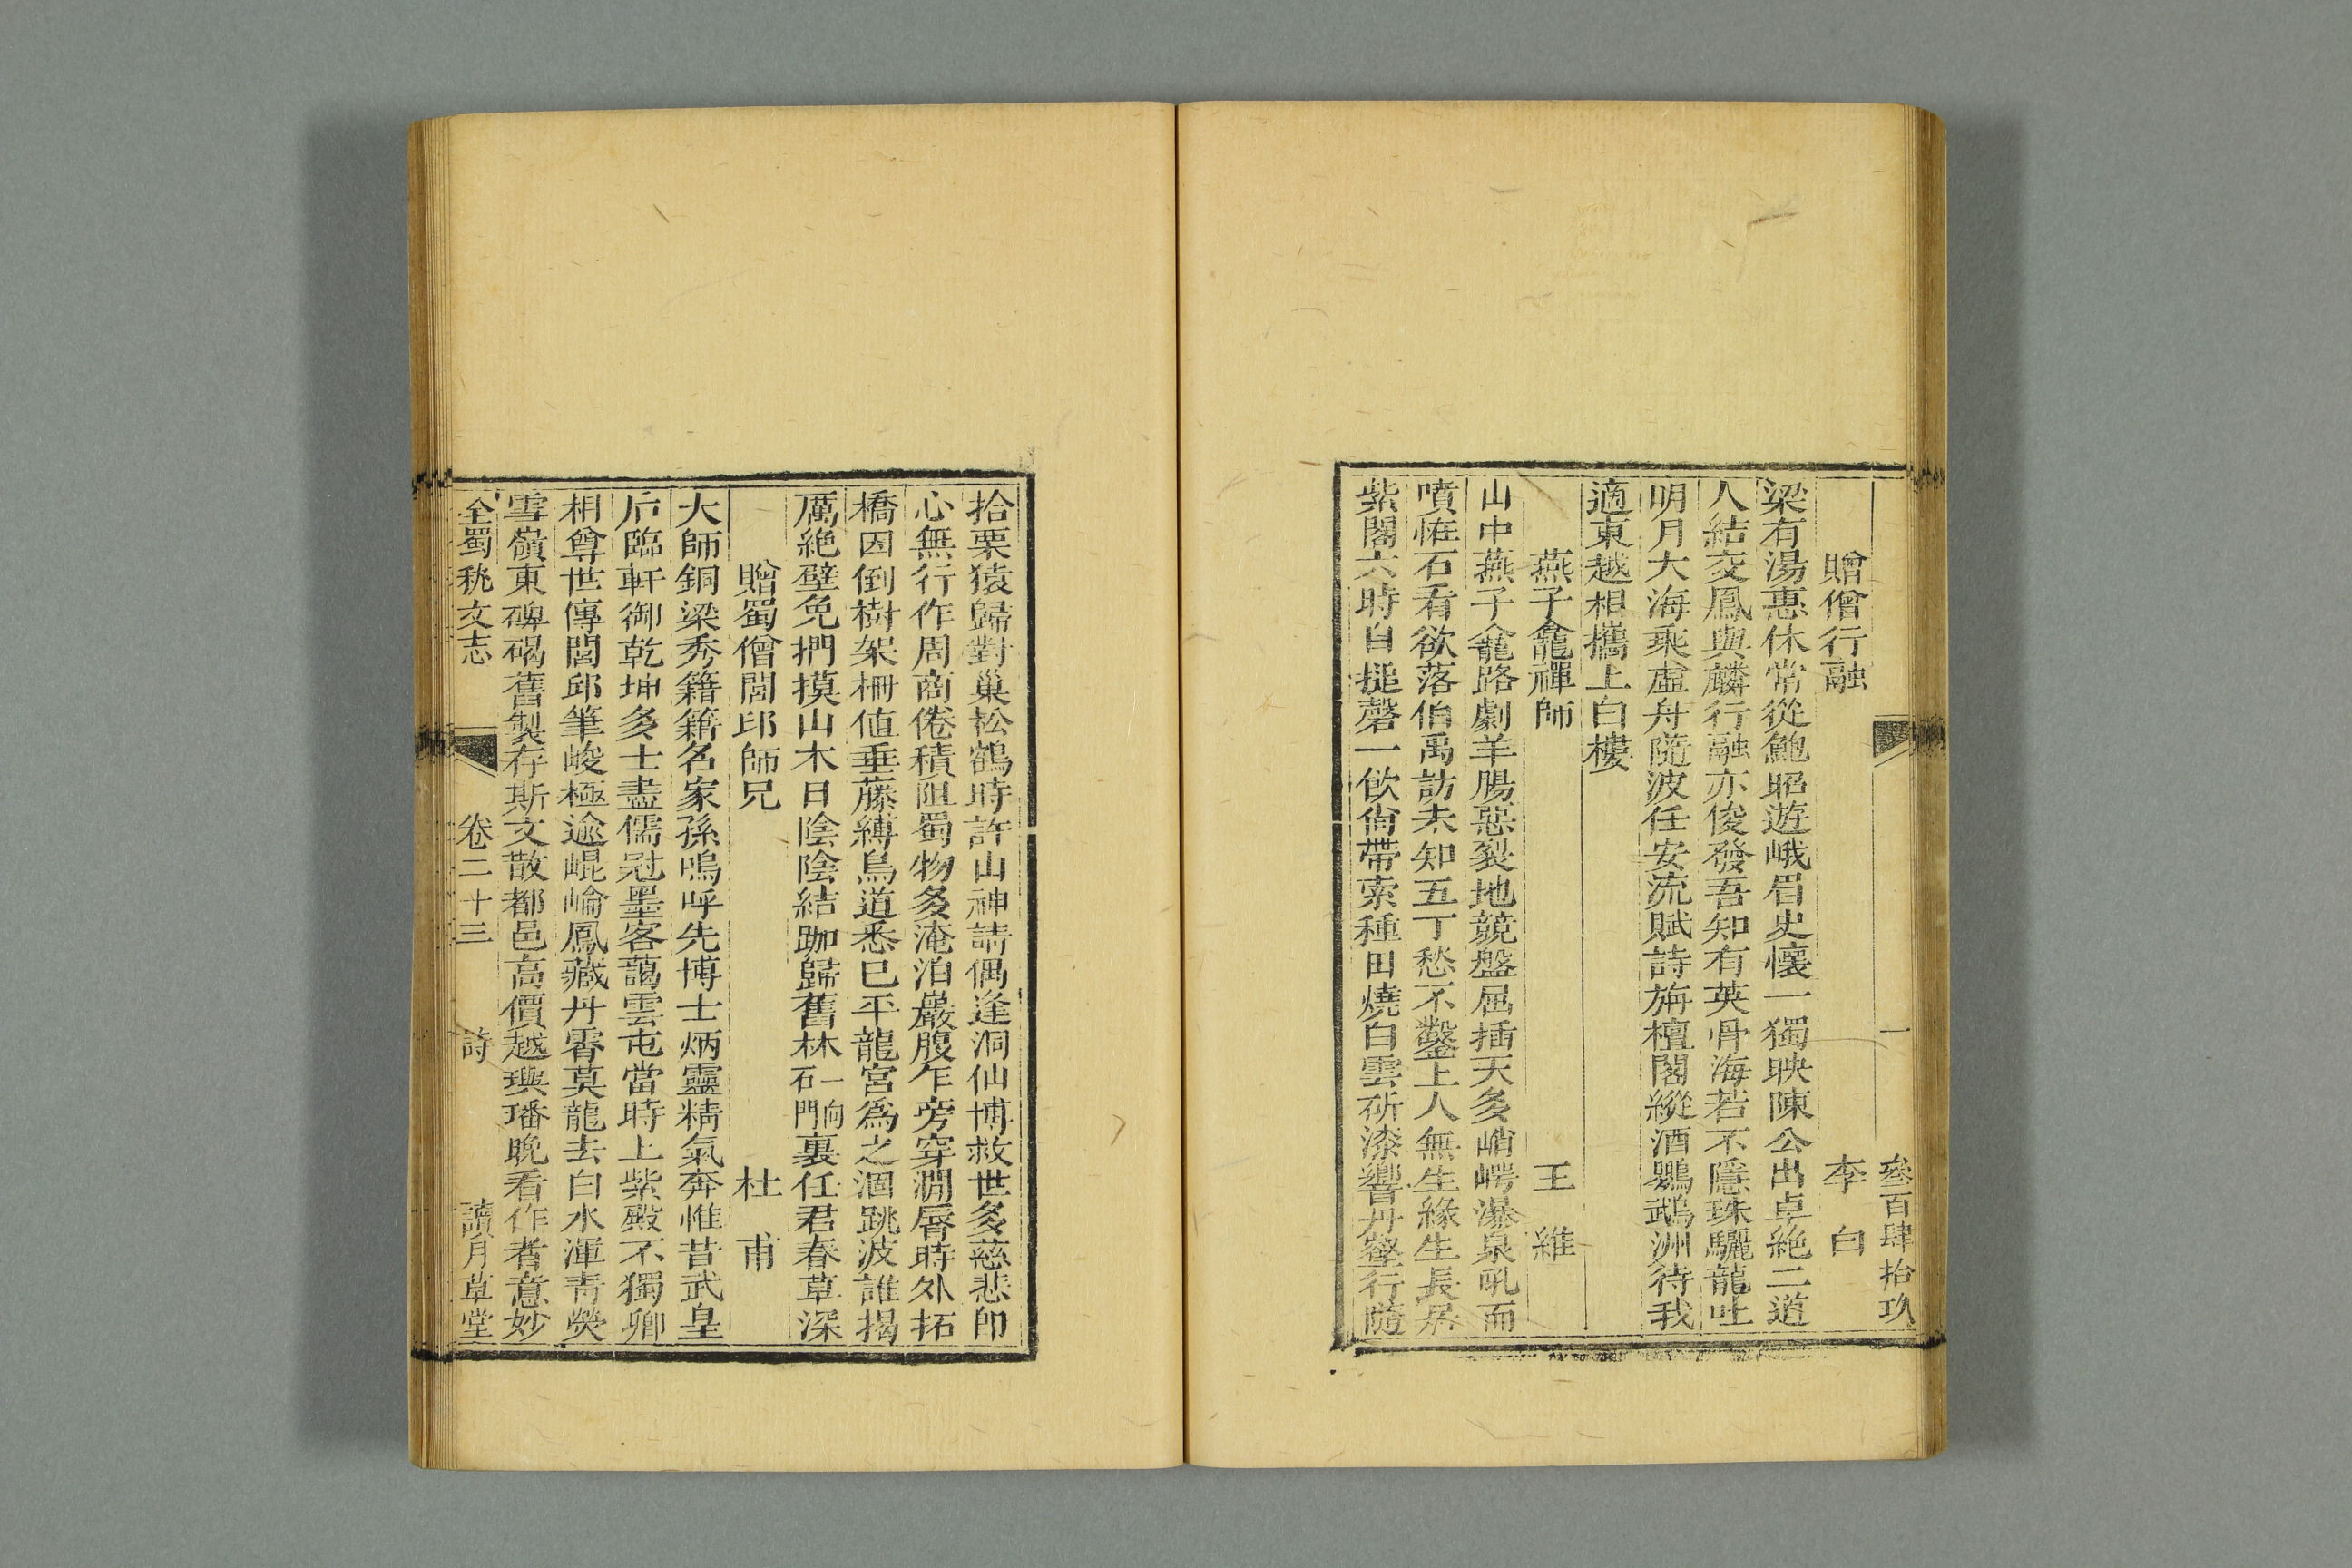 一 叄百肆拾玖
贈僧行融 李白
梁有湯惠休常從鮑昭遊峨眉史懷一獨映陳公出卓絶二道
人結交鳳與麟行融亦俊發吾知有英骨海若不隱珠驪龍吐
明月大海乘虛舟隨波任安流賦詩旃檀閣縱酒鸚鵡洲待我
適東越相攜上白樓
燕子龕禪師 王維
山中燕子龕路劇羊腸惡裂地競盤屈插天多峭崿瀑泉吼而
噴恠石看欲落伯禹訪未知五丁愁不鑿上人無生緣生長居
紫閣六時自搥磬一飲尙帶索種田燒白雲斫漆響丹壑行隨
拾栗猿歸對巢松鶴時許山神請偶逢洞仙博救世多慈悲卽
心無行作周商倦積阻蜀物多淹泊巖腹乍旁穿澗脣時外拓
橋因倒樹架柵値垂藤縛鳥道悉已平龍宮爲之涸跳波誰揭
厲絶壁免捫摸山木日陰陰結跏歸舊林一向石門裏任君春草深
贈蜀僧閭邱師兄 杜甫
大師銅梁秀籍籍名家孫嗚呼先博士炳靈精氣奔惟昔武皇
后臨軒御乾坤多士盡儒冠墨客藹雲屯當時上紫殿不獨卿
相尊世傳閭邱筆峻極逾崐崘鳳藏丹霄莫龍去白水渾靑熒
雪嶺東碑碣舊製存斯文散都邑高價越璵璠晚看作者意妙
全蜀秇文志 卷二十三 詩 讀月草堂